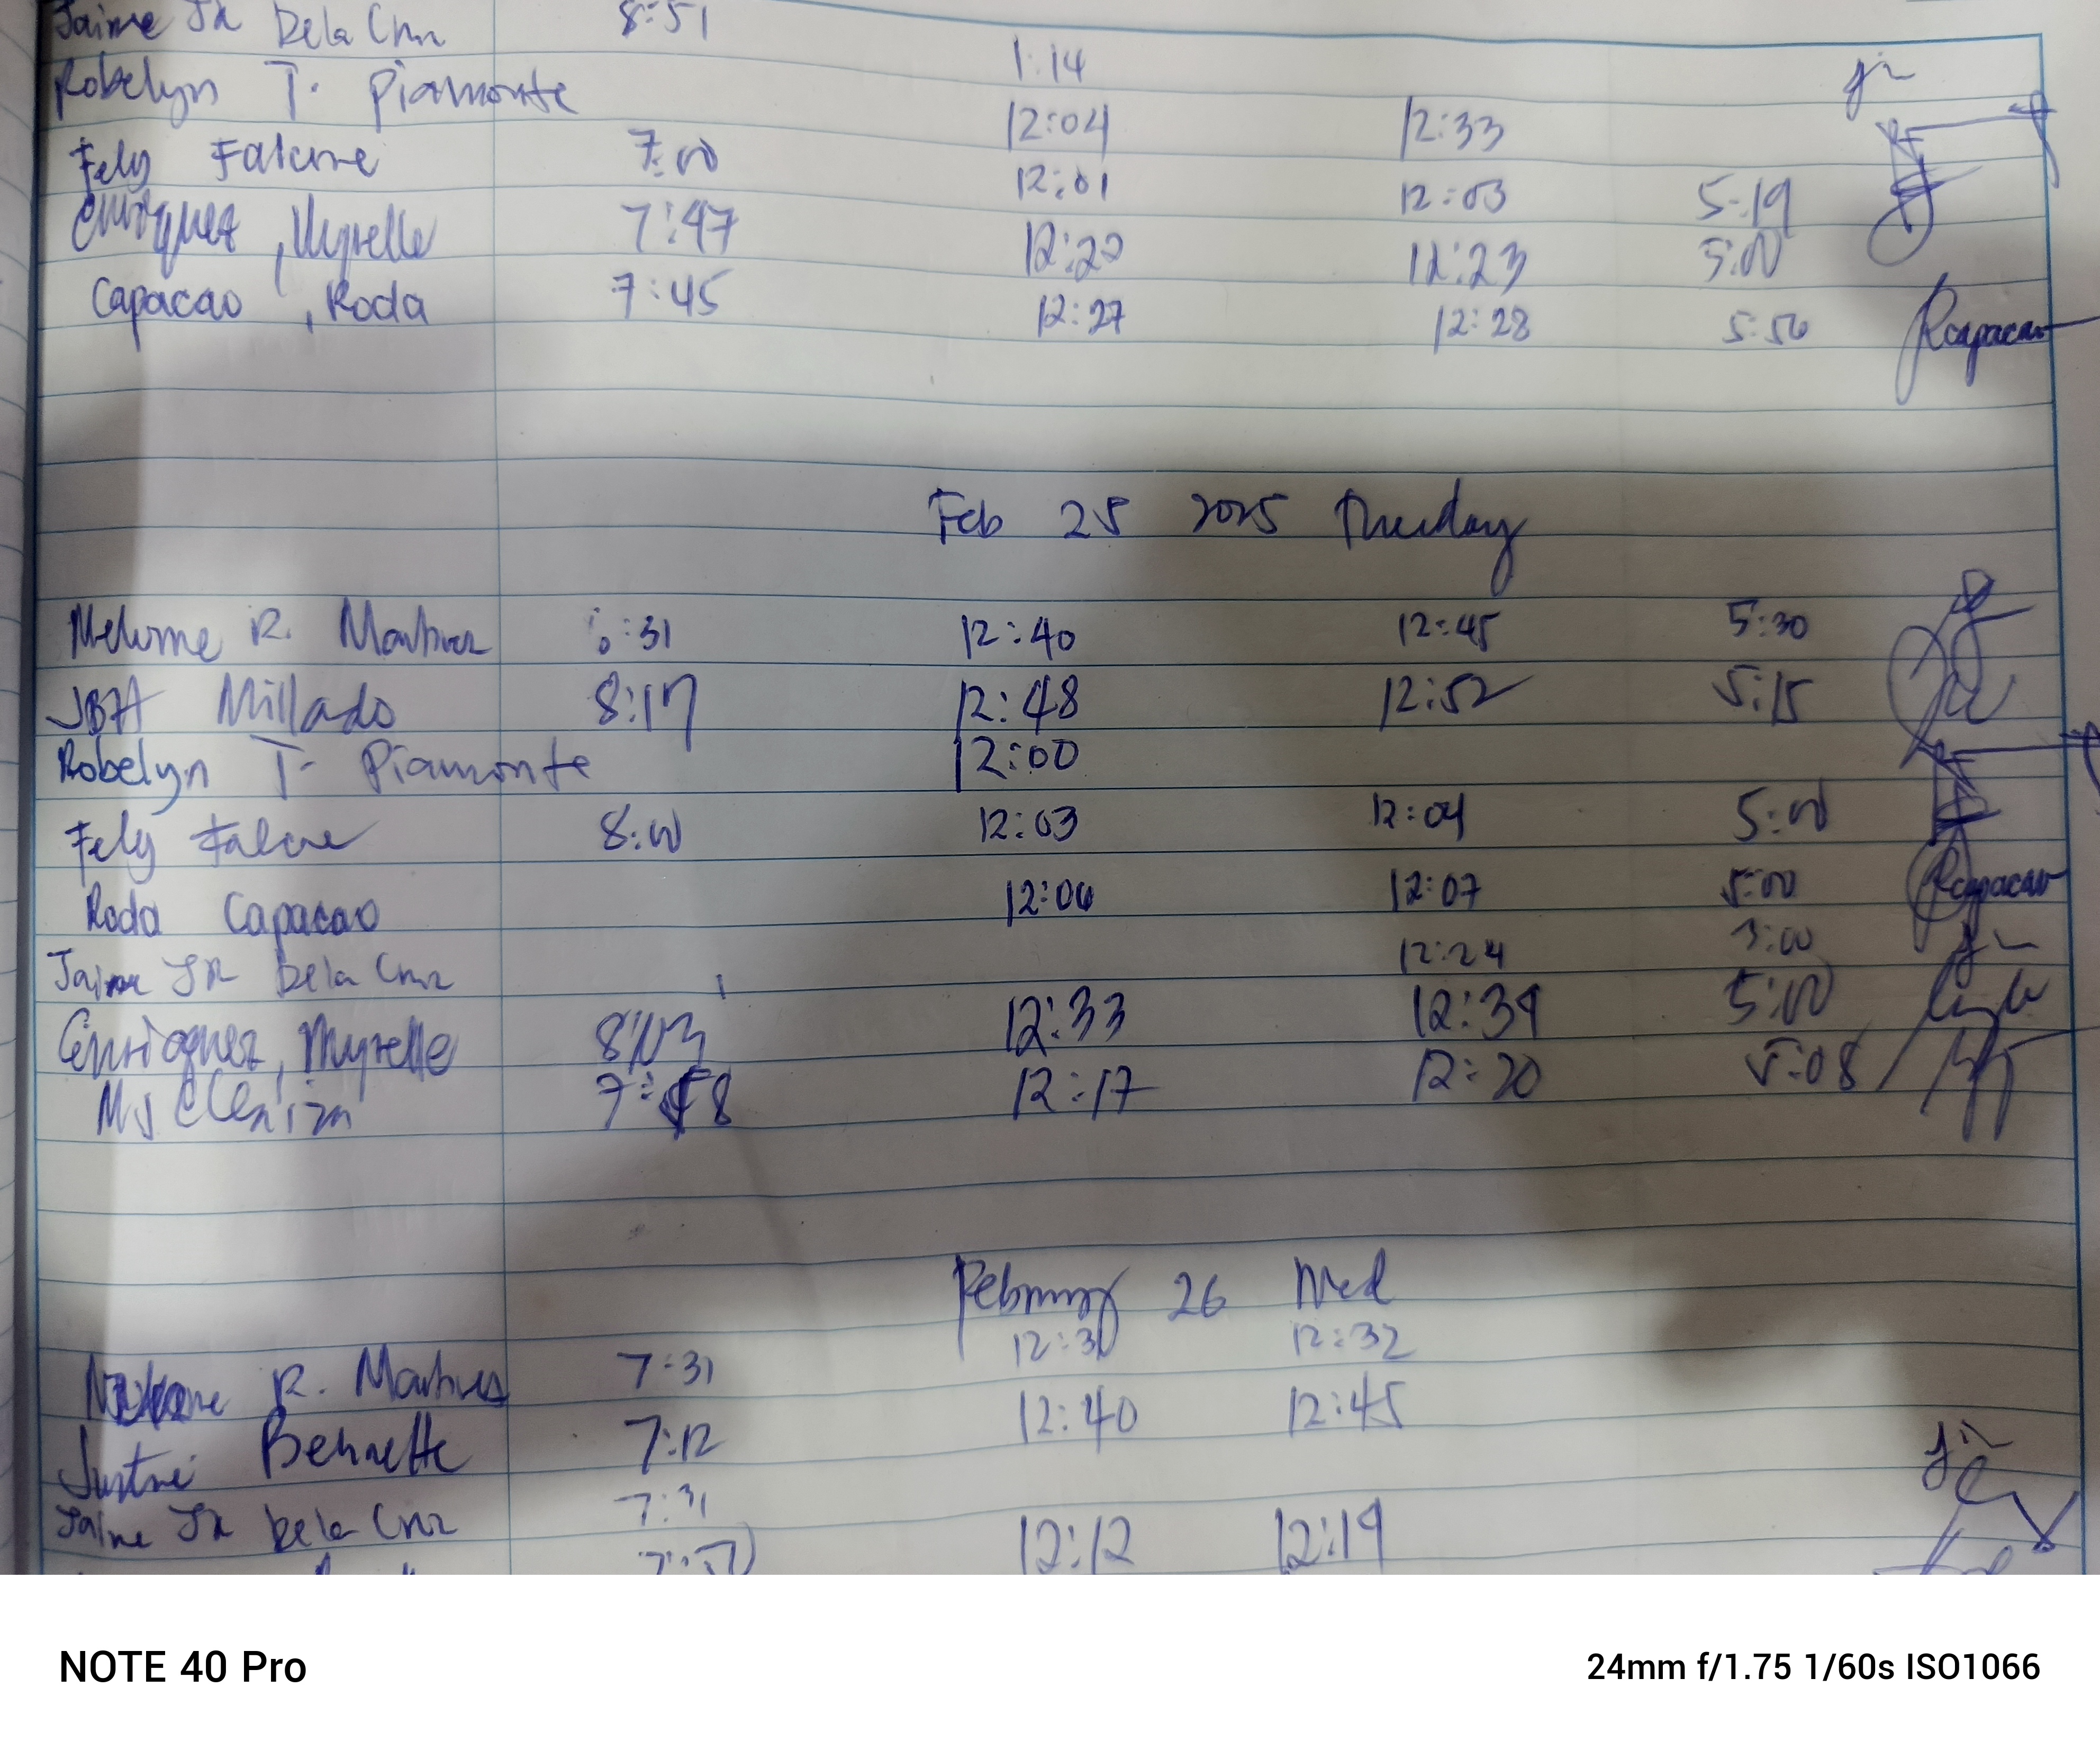 Jaime JR Dela Cruz 8:51 1:14
Robelyn T. Piamonte 12:04 12:33
Fely Falcne 7:00 12:01 12:03 5:19
Enriquez, Myrelle 7:47 12:22 12:23 5:00
Capacao, Roda 7:45 12:27 12:28 5:56 Rcapacao
Feb 25 2025 Tuesday
R. :31 12:40 12:45 5:30
JBA Millado 8:17 12:48 12:52 5:15
Robelyn T. Piamonte 12:00
Fely Falcne 8:00 12:03 12:04 5:00
Roda Capacao 12:06 12:07 5:00 Rcapacao
Jaime JR Dela Cruz 12:24 5:00
Enriquez, Myrelle 8:03 12:33 12:34 5:00
MJ 12:17 12:20 5:08
February 26 Wed
R. 7:31 12:31 12:32
Justine Bennette 7:12 12:40 12:45
Jaime JR Dela Cruz 7:31
12:12 12:19
NOTE 40 Pro
24mm f/1.75 1/60s ISO1066